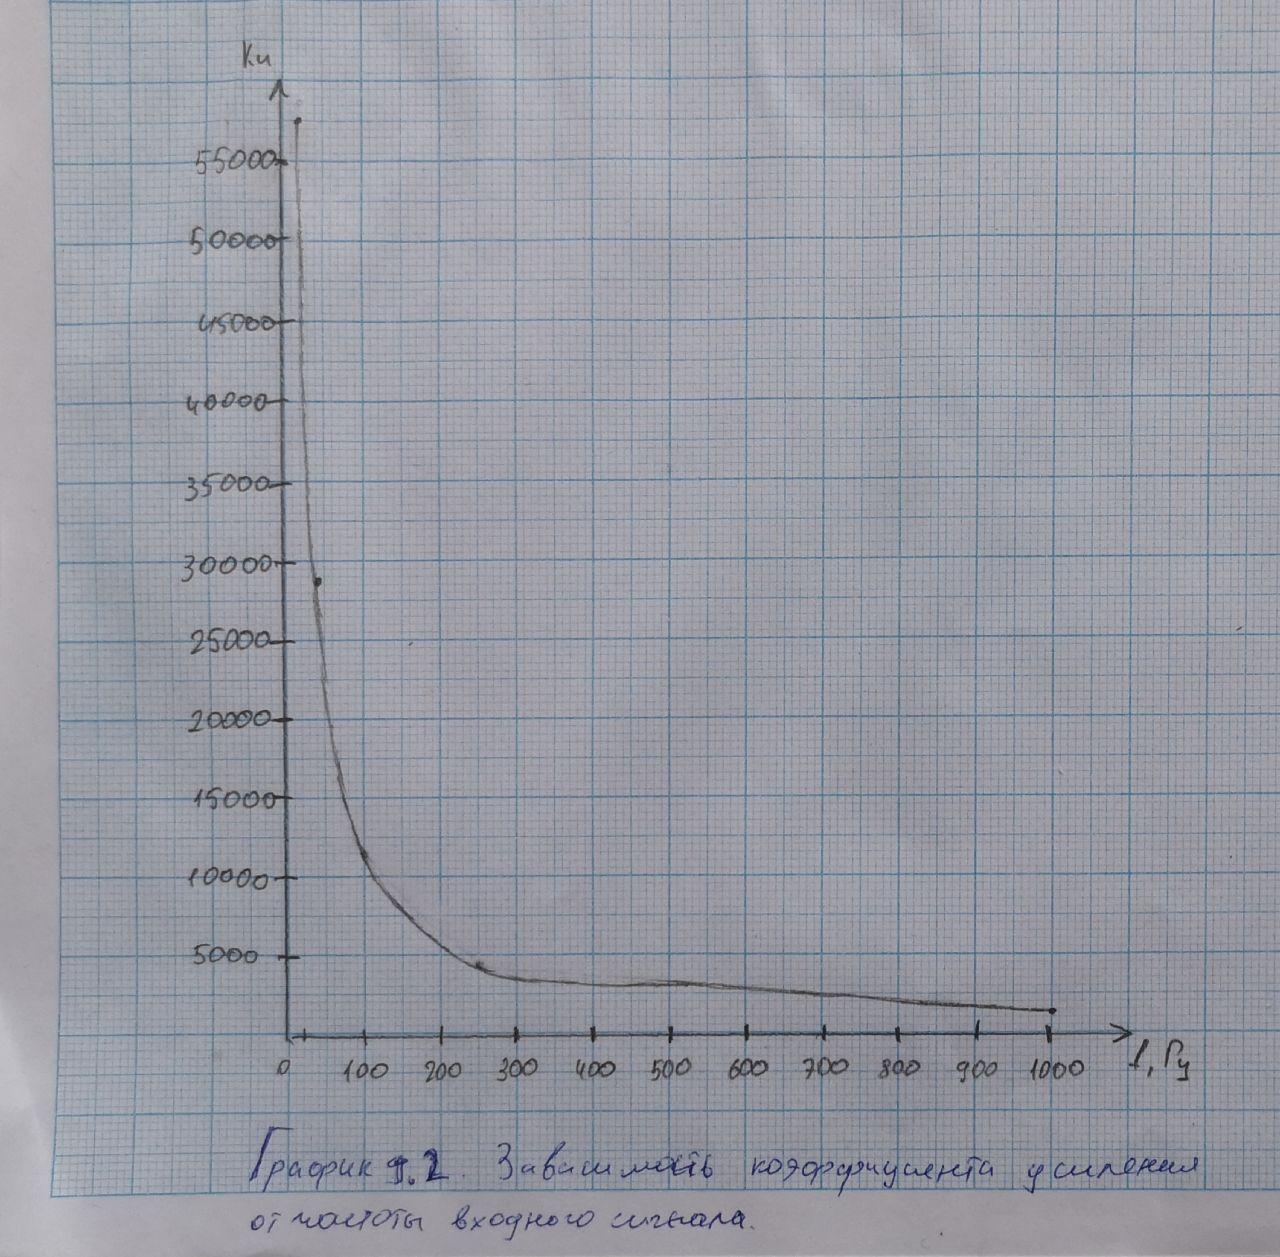 Ku
55000
50000
45000
40000
35000
30000
25000
20000
15000
10000
5000
0 100 200 300 400 500 600 700 800 900 1000 f, Гц
График 9.2. Зависимость коэффициента усиления
от частоты входного сигнала.